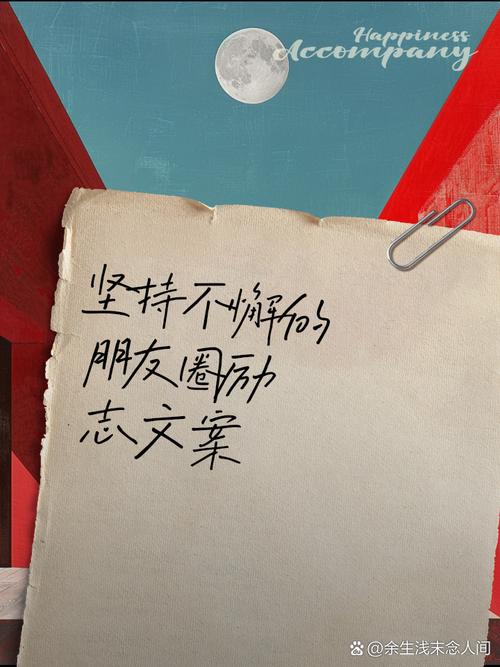 Happiness
Accompany
坚持不懈的
朋友圈励
志文案
余生浅未念人间